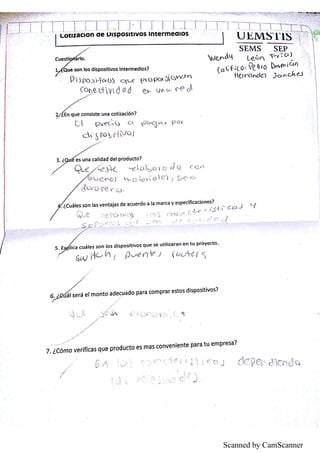 Cotización de Dispositivos Intermedios
UEMSTIS
SEMS SEP
Wendy León Frias
Calificó: Pedro Damián
Hernandez Sanchez
Cuestionario.
1. ¿Que son los dispositivos intermedios?
Dispositivos que proporcionan
conectividad en una red
2. ¿En que consiste una cotización?
El precio a pagar por
dispositivos
3. ¿Qué es una calidad del producto?
Que este elaborado con
buenos materiales, sea
duradero.
4. ¿Cuáles son las ventajas de acuerdo a la marca y especificaciones?
Que sepamos las características y
sepamos que son de calidad
5. Explica cuáles son los dispositivos que se utilizaran en tu proyecto.
switch, puente, routers
6. ¿Cuál será el monto adecuado para comprar estos dispositivos?
que sea
7. ¿Cómo verificas que producto es mas conveniente para tu empresa?
En las características dependiendo
las
Scanned by CamScanner